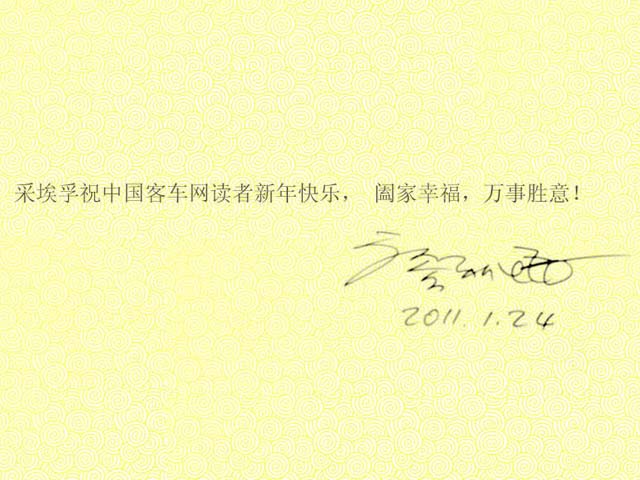 采埃孚祝中国客车网读者新年快乐， 阖家幸福，万事胜意！
2011.1.24